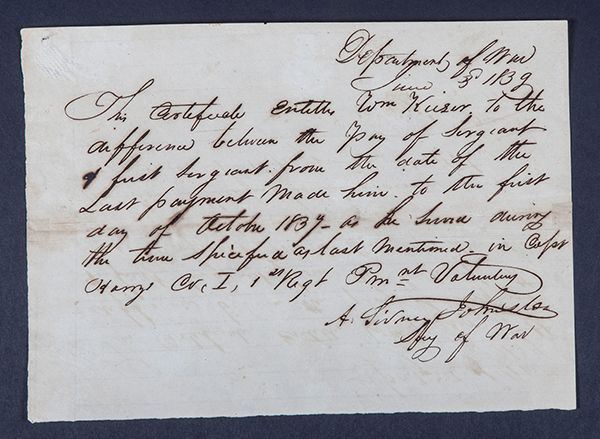 Department of War
June 5th 1839
This Certificate Entitles Wm Keizer to the
difference between the Pay of Sergeant
& first Sergeant from the date of the
Last payment Made him to the first
day of Octobr 1837 - as he served during
the time Specified as last Mentioned - in Capt
Co, I, 1st Regt Pmnt Volunteers
A. Sidney Johnston
Secy of War